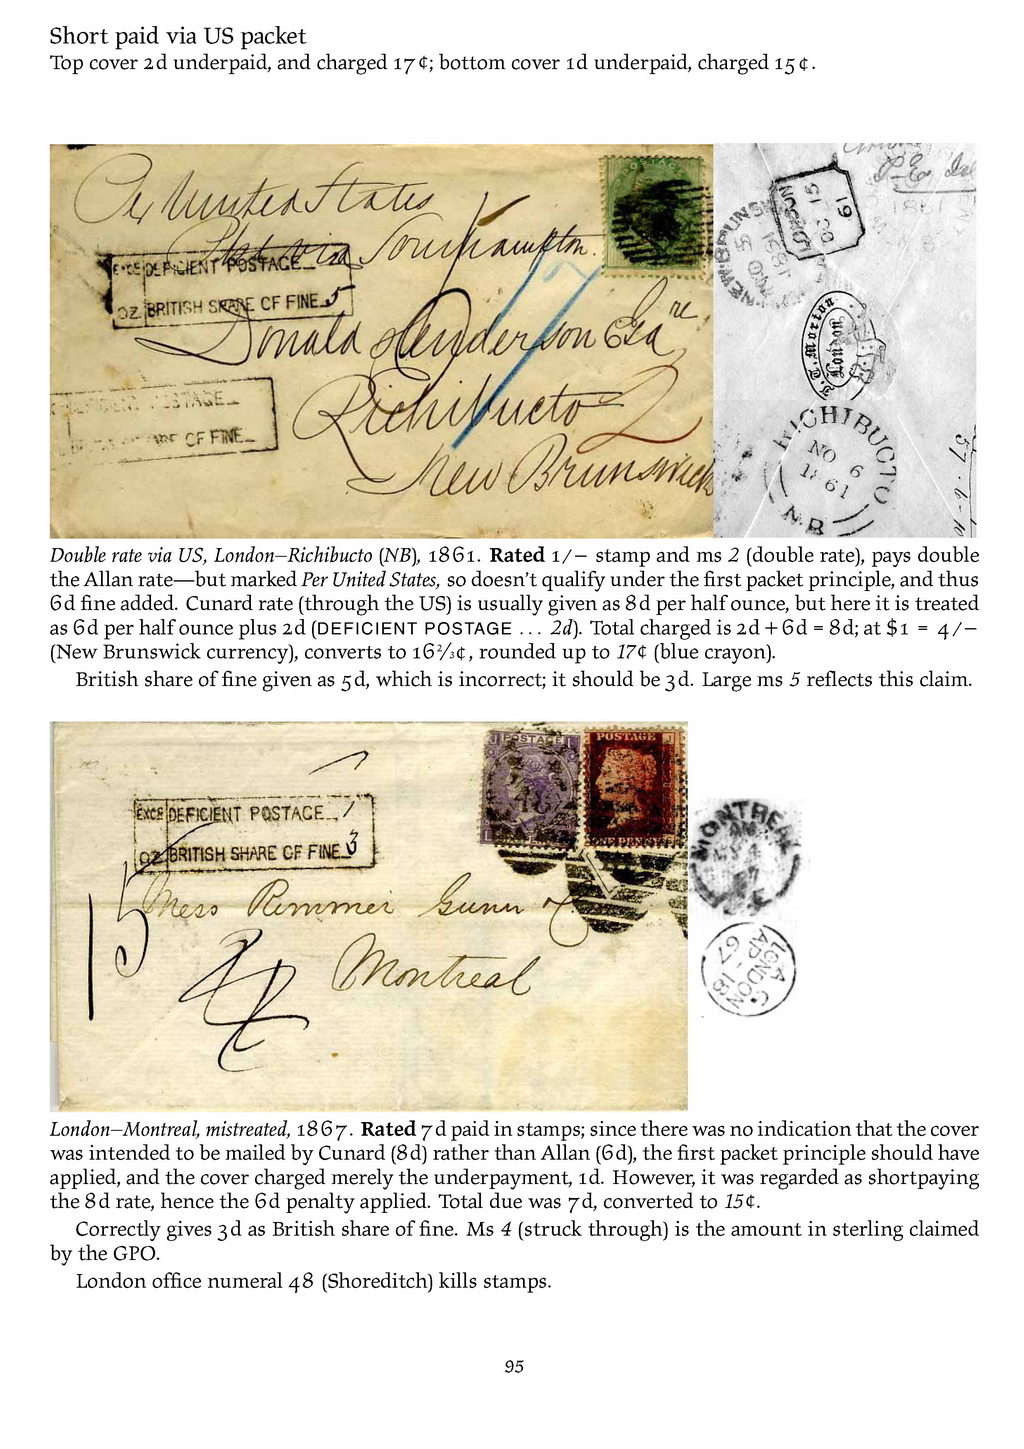 Short paid via US packet
Top cover 2d underpaid, and charged 17¢; bottom cover 1d underpaid, charged 15¢.
Per United States
Pkt via Southampton.
EXCE DEFICIENT POSTAGE
OZ. BRITISH SHARE OF FINE 5
Donald Henderson Esqre
Richibucto 2
New Brunswick
DEFICIENT POSTAGE
SHARE OF FINE
LONDON
DC 15
61
NEW BRUNSWICK
1861
J. T. Morton
London
RICHIBUCTO
NO 6
1861
N.B
Double rate via US, London–Richibucto (NB), 1861. Rated 1/– stamp and ms 2 (double rate), pays double
the Allan rate—but marked Per United States, so doesn't qualify under the first packet principle, and thus
6d fine added. Cunard rate (through the US) is usually given as 8d per half ounce, but here it is treated
as 6d per half ounce plus 2d (DEFICIENT POSTAGE ... 2d). Total charged is 2d + 6d = 8d; at $1 = 4/–
(New Brunswick currency), converts to 16⅔¢, rounded up to 17¢ (blue crayon).
British share of fine given as 5d, which is incorrect; it should be 3d. Large ms 5 reflects this claim.
POSTAGE
POSTAGE
EXCE DEFICIENT POSTAGE 1
OZ BRITISH SHARE OF FINE 3
15
Mess Rimmer Gunn &
Montreal
4
MONTREAL
LONDON
AP 18
67
London–Montreal, mistreated, 1867. Rated 7d paid in stamps; since there was no indication that the cover
was intended to be mailed by Cunard (8d) rather than Allan (6d), the first packet principle should have
applied, and the cover charged merely the underpayment, 1d. However, it was regarded as shortpaying
the 8d rate, hence the 6d penalty applied. Total due was 7d, converted to 15¢.
Correctly gives 3d as British share of fine. Ms 4 (struck through) is the amount in sterling claimed
by the GPO.
London office numeral 48 (Shoreditch) kills stamps.
95